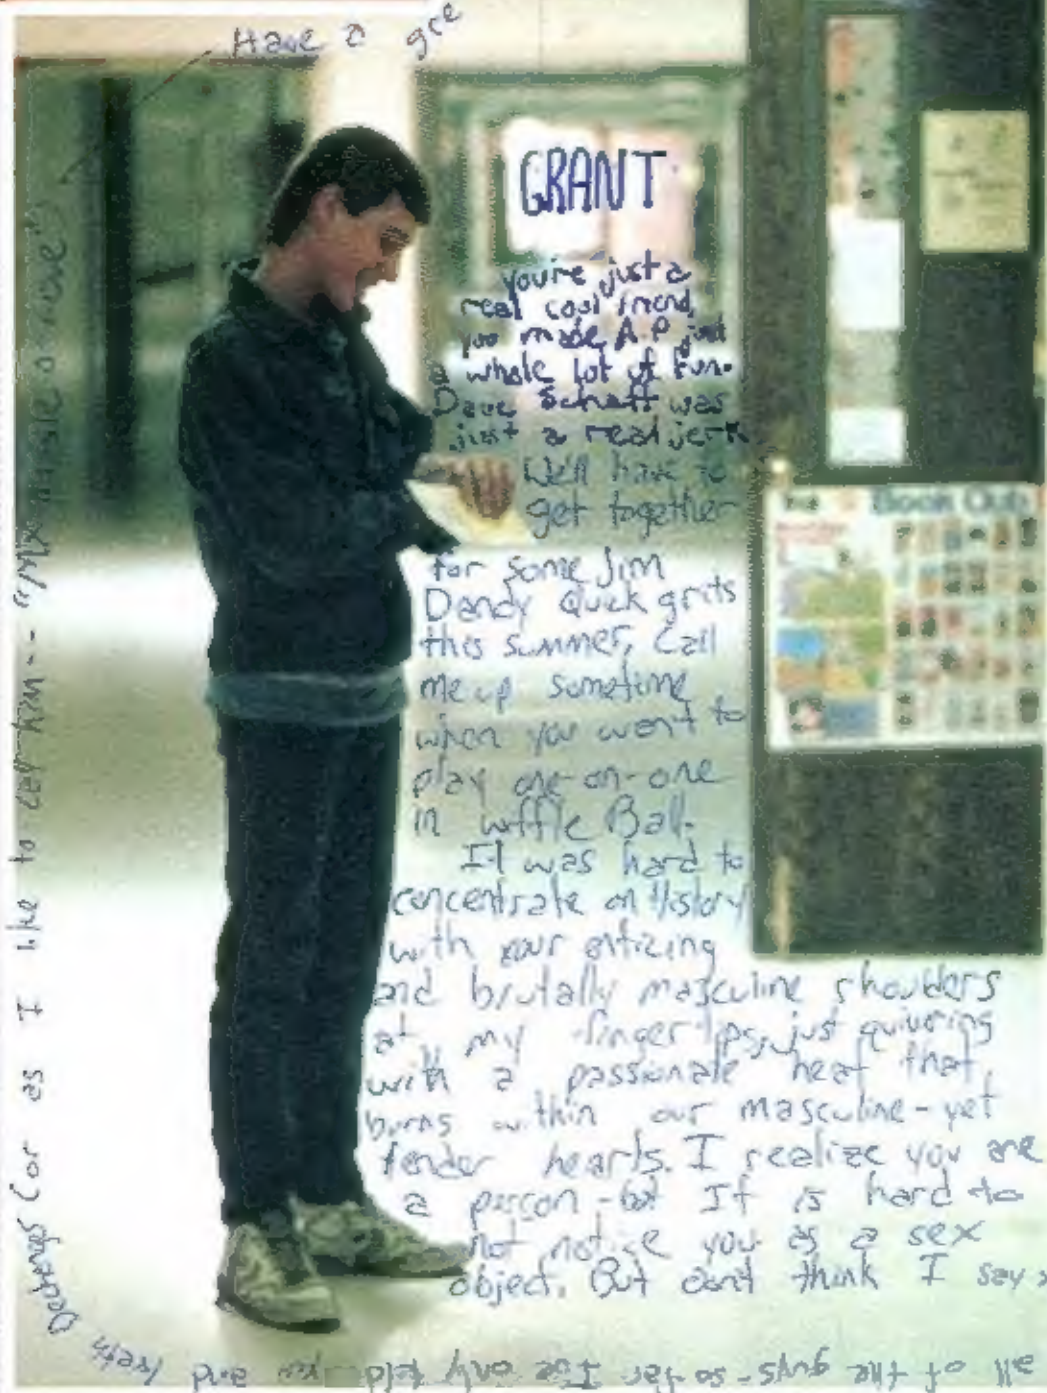 GRANT
you're just a
real cool friend,
you made A.P just
a whole lot of fun.
Dave Schaff was
just a real jerk
We'll have to
get together
for some Jim
Dandy Quick grits
this summer, Call
me up sometime
when you want to
play one-on-one
in wiffle Ball.
It was hard to
concentrate on History
with your enticing
and brutally masculine shoulders
at my fingertips, just quivering
with a passionate heat that
burns within our masculine-yet
tender hearts. I realize you are
a person-but It is hard to
not notice you as a sex
object. But don't think I say
all of the guys-so far I've only told you and Keith
(or as I like to call him--
Have a gre
Book Club